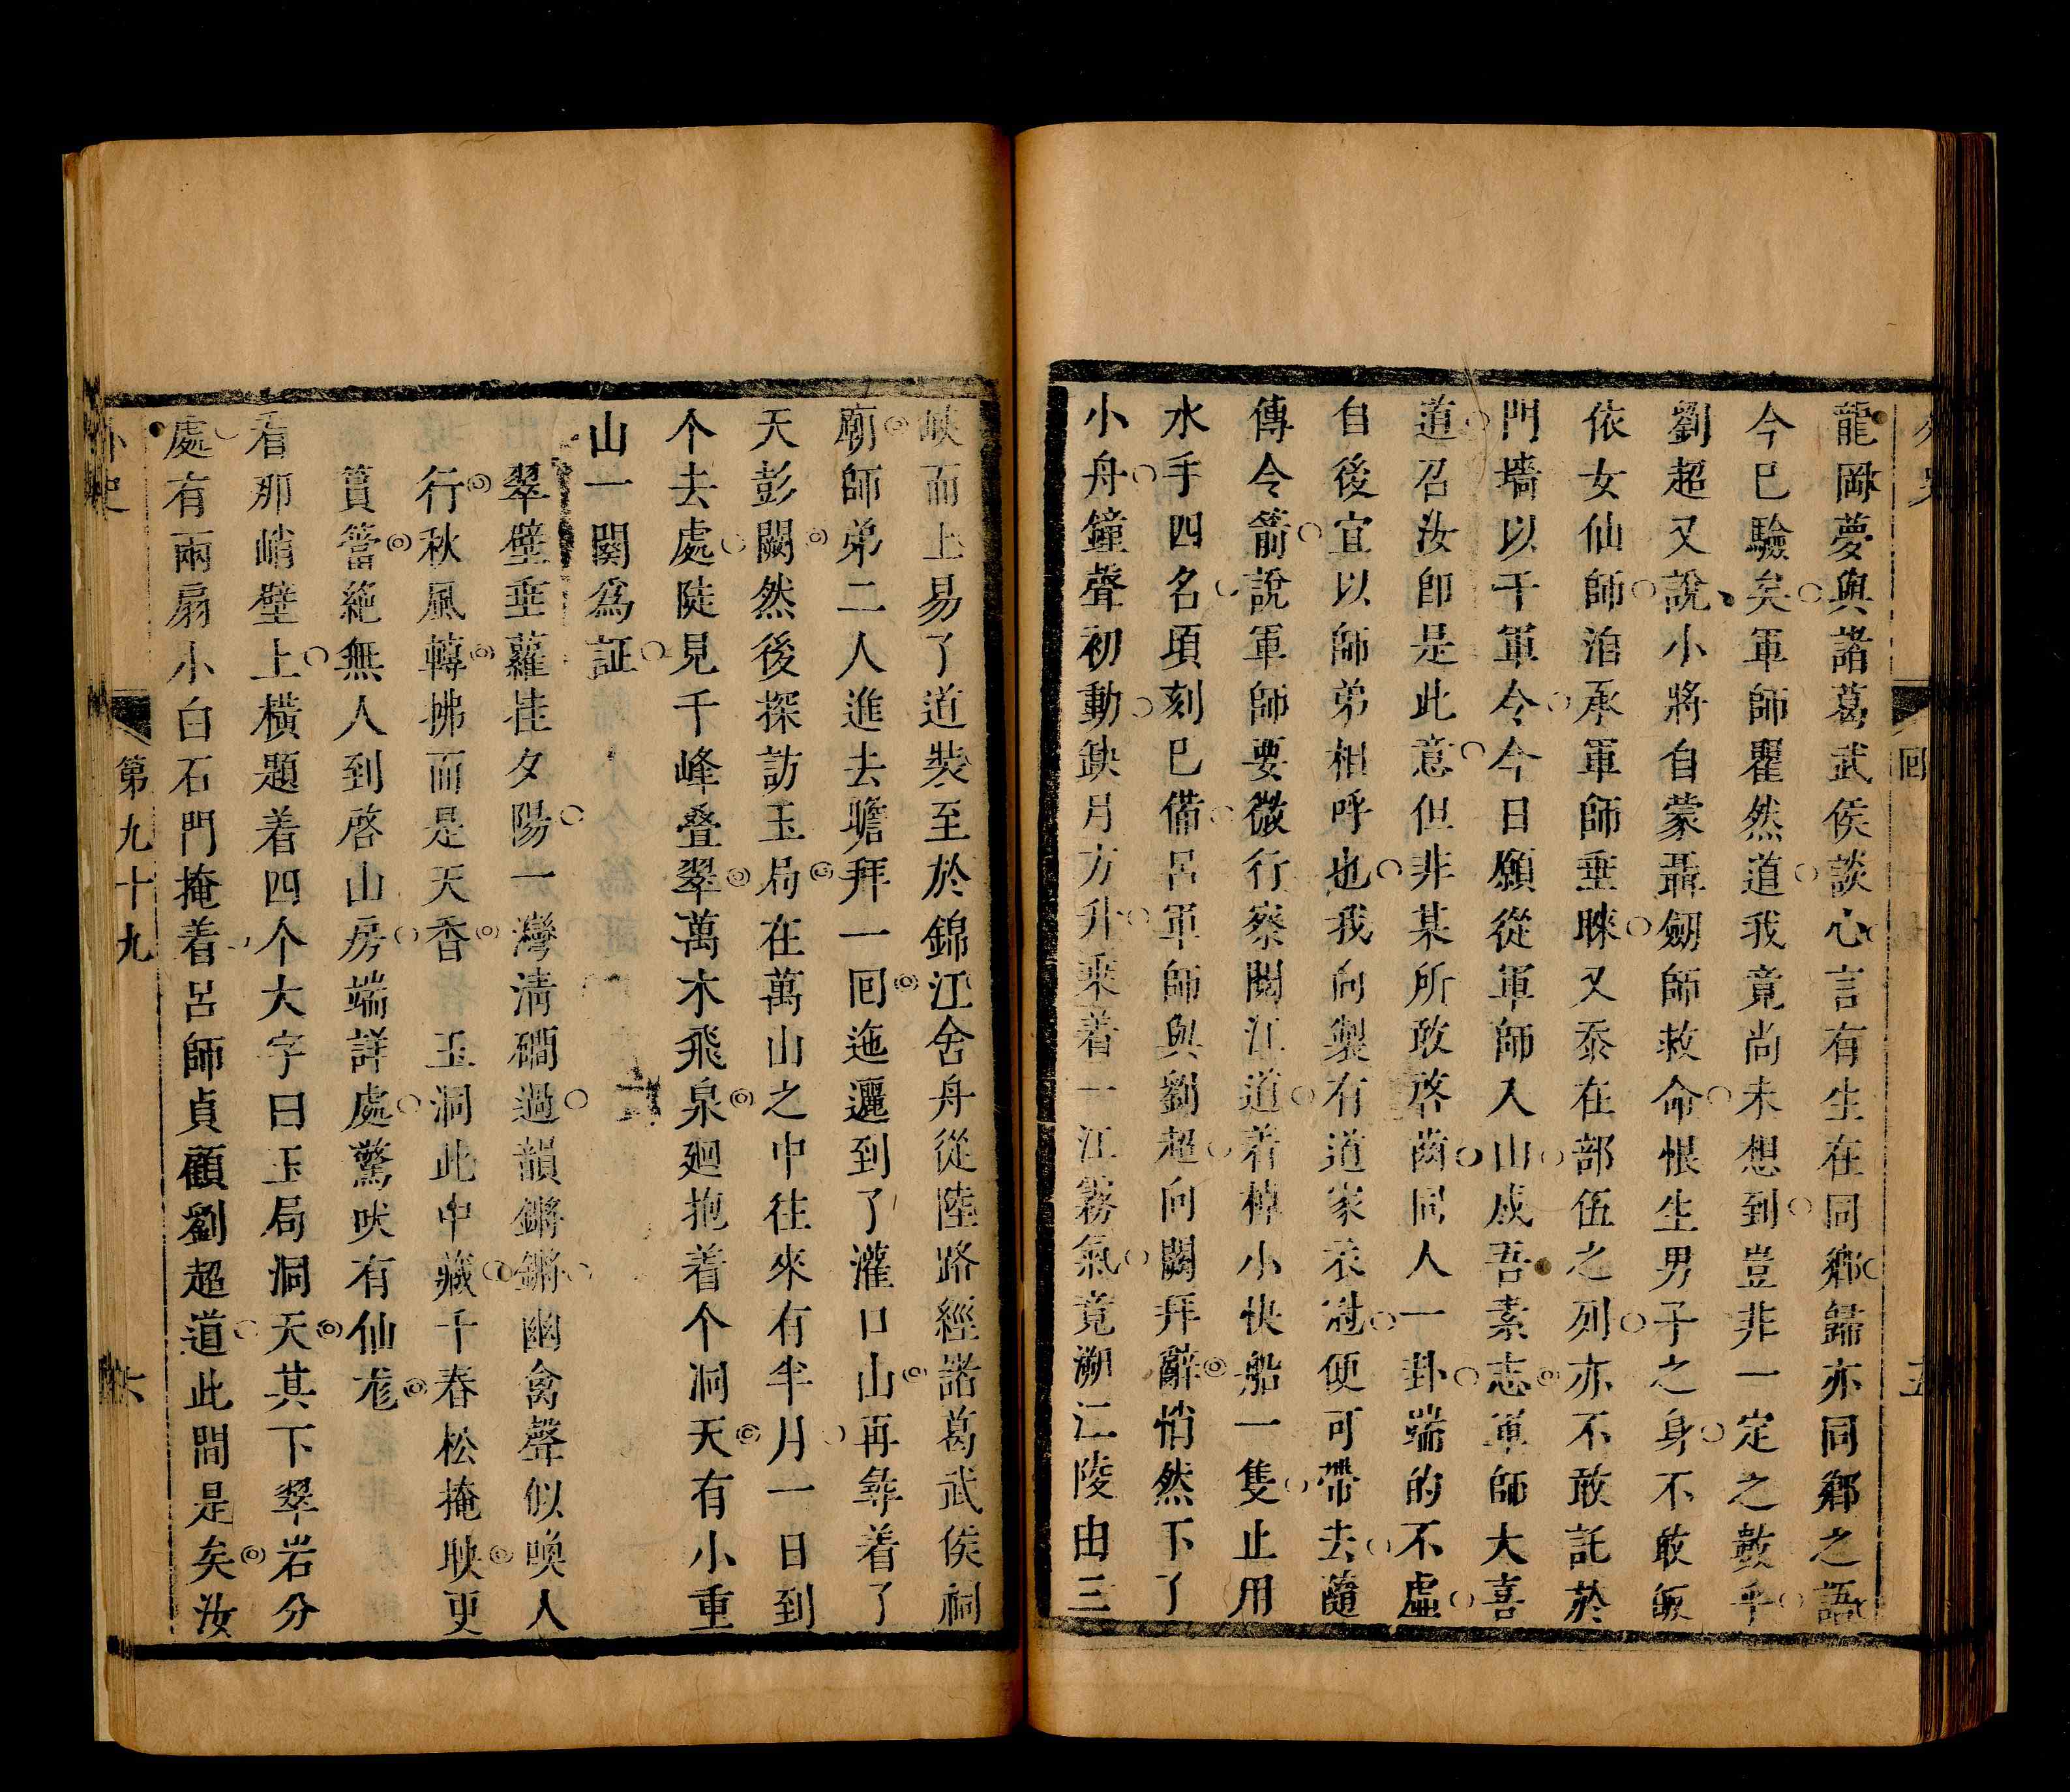 龍岡夢與諸葛武侯談心言有生在同鄉歸亦同鄉之語
今已驗矣軍師瞿然道我竟尚未想到豈非一定之數乎
劉超又說小將自蒙聶劒師救命恨生男子之身不敢皈
依女仙師洎承軍師垂睞又忝在部伍之列亦不敢託於
門墻以干軍令今日願從軍師入山成吾素志軍師大喜
道召汝卽是此意但非某所敢啓齒同人一卦端的不虛
自後宜以師弟相呼也我向製有道家衣冠便可帶去隨
傳令箭說軍師要微行察閱江道着棹小快船一隻止用
水手四名頃刻已備呂軍師與劉超向闕拜辭悄然下了
小舟鐘聲初動缺月方升乘着一江霧氣竟溯江陵由三
回
五
峽而上易了道裝至於錦江舍舟從陸路經諸葛武侯祠
廟師弟二人進去瞻拜一回迤邐到了灌口山再尋着了
天彭闕然後探訪玉局在萬山之中往來有半月一日到
个去處陡見千峰叠翠萬木飛泉廻抱着个洞天有小重
山一闋爲証
翠壁垂蘿挂夕陽一灣淸磵過韻鏘鏘幽禽聲似喚人
行秋風轉拂面是天香 玉洞此中藏千春松掩映更
篔簹絶無人到啓山房端詳處驚吠有仙尨
看那峭壁上橫題着四个大字曰玉局洞天其下翠岩分
處有兩扇小白石門掩着呂師貞顧劉超道此間是矣汝
外史
第九十九
六